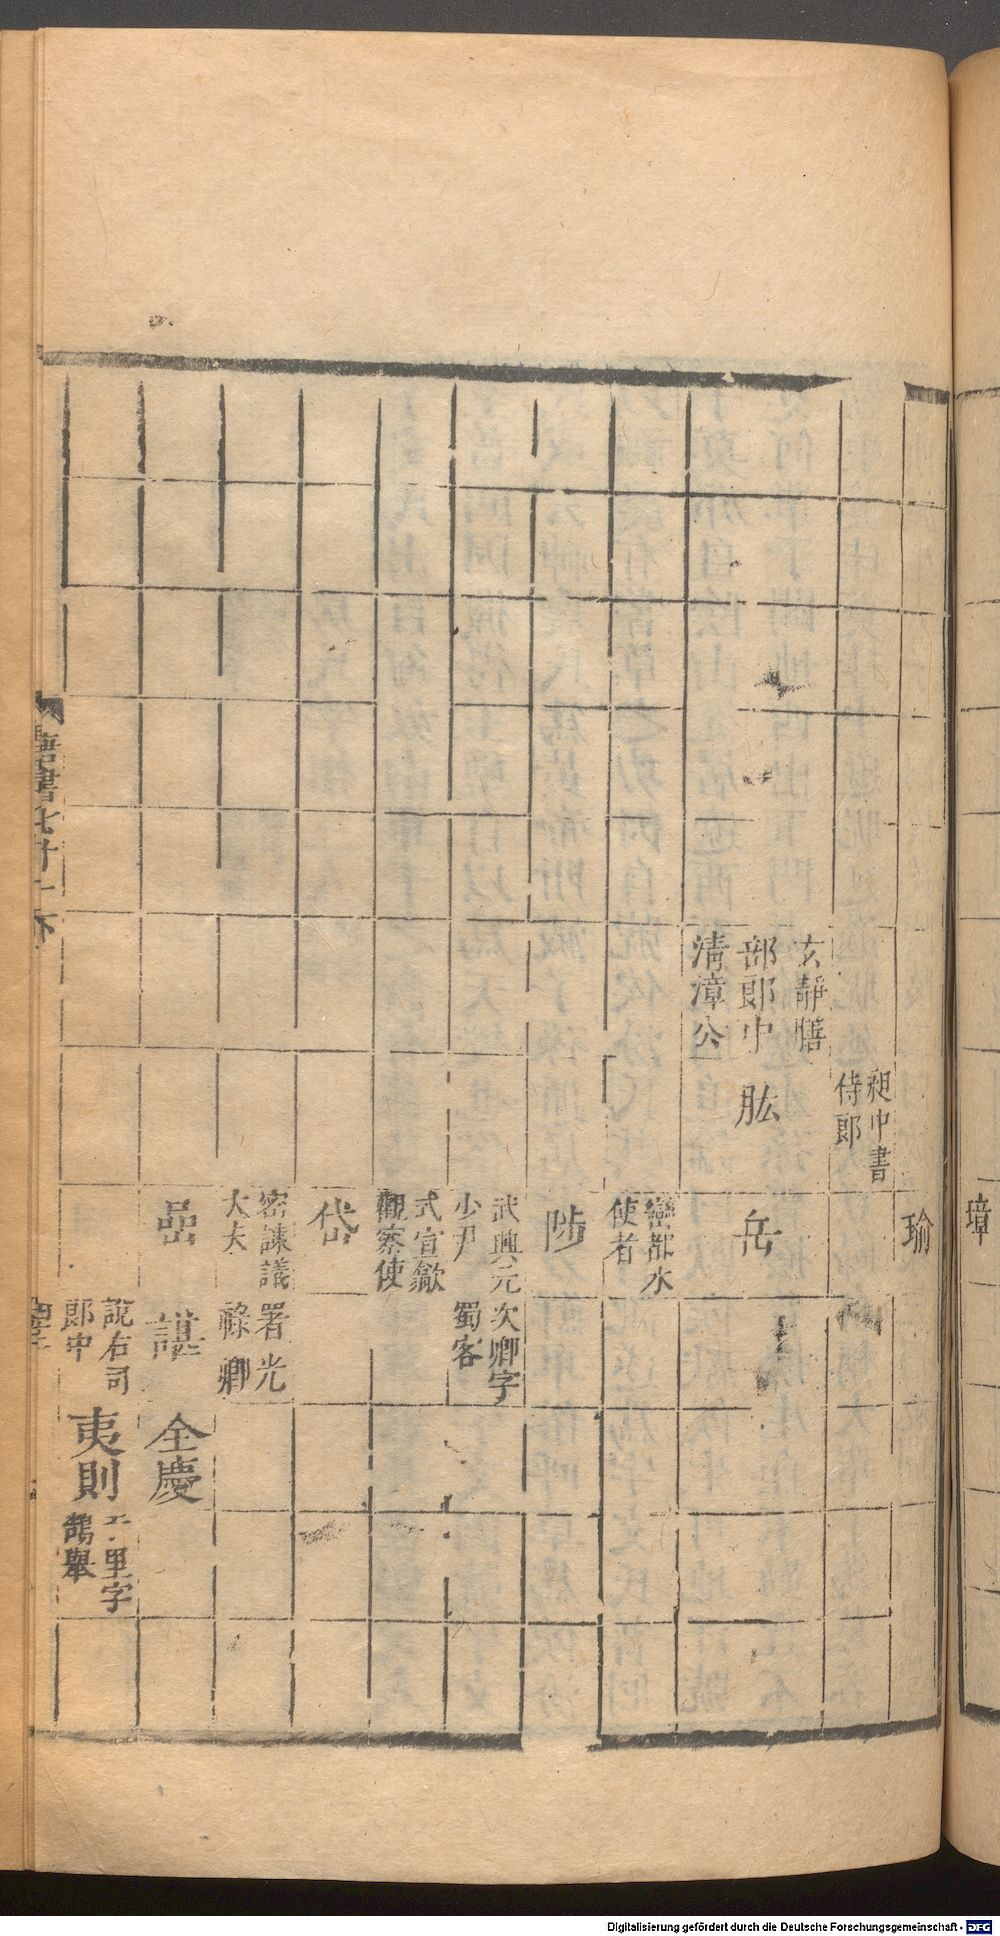 璋
瑜
昶中書
侍郎
玄靜膳
部郎中
清漳公
肱
岳
巒都水
使者
陟
武興元
少尹
次卿字
蜀客
式宣歙
觀察使
岱
密諫議
大夫
署光
祿卿
嵒
諶
全慶
說右司
郎中
夷則
里字
鵠舉
唐書
Digitalisierung gefördert durch die Deutsche Forschungsgemeinschaft - DFG